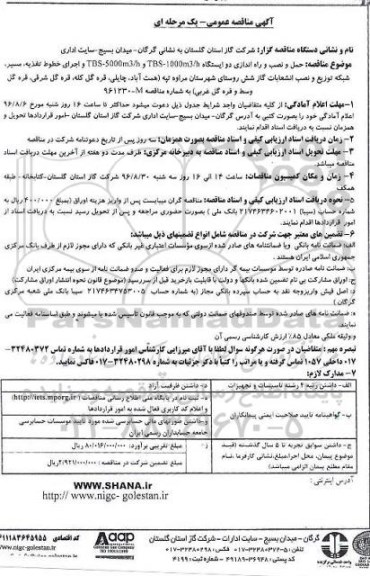 آگهی مناقصه عمومی- یک مرحله ای
نام و نشانی دستگاه مناقصه گزار: شرکت گاز استان گلستان به نشانی گرگان- میدان بسیج- سایت اداری
موضوع مناقصه: حمل و نصب و راه اندازی دو ایستگاه TBS-1000m3/h و TBS-5000m3/h و اجرای خطوط تغذیه، مسیر،
شبکه توزیع و نصب انشعابات گاز شش روستای شهرستان مراوه تپه (همت آباد، چاپلی، قره گل کله، قره گل شرقی، قره گل
وسط و قره گل غربی) به شماره مناقصه
۱-مهلت اعلام آمادگی: از کلیه متقاضیان واجد شرایط جدول ذیل دعوت میشود حداکثر تا ساعت ۱۶ روز شنبه مورخ ۹۶/۸/۶
اعلام آمادگی خود را بصورت کتبی به آدرس گرگان- میدان بسیج- سایت اداری شرکت گاز استان گلستان -امور قراردادها تحویل و
همزمان نسبت به دریافت اسناد اقدام نمایند.
۲- زمان دریافت اسناد ارزیابی کیفی و اسناد مناقصه بصورت همزمان: سه روز پس از تاریخ دعوتنامه شرکت در مناقصه
۳- مهلت تحویل اسناد ارزیابی کیفی و اسناد مناقصه به دبیرخانه مرکزی: ظرف مدت دو هفته از آخرین مهلت دریافت اسناد
مناقصه میباشد.
۴- زمان و مکان کمیسیون مناقصات: ساعت ۱۴ الی ۱۶ روز سه شنبه ۹۶/۸/۳۰ شرکت گاز استان گلستان-کتابخانه- طبقه
همکف
۵- نحوه دریافت اسناد ارزیابی کیفی و اسناد مناقصه: مناقصه گران میبایست پس از واریز هزینه اوراق (بمبلغ ۴۰۰/۰۰۰ ریال به
شماره حساب (سیبا) بانک ملی) بصورت حضوری مراجعه و پس از تحویل رسید نسبت به دریافت اسناد از
امور قراردادها اقدام نمایند.
۶- تضمین های معتبر جهت شرکت در مناقصه شامل انواع تضمینهای ذیل میباشد:
الف: ضمانت نامه بانکی و یا ضمانتنامه های صادره ازسوی مؤسسات اعتباری غیر بانکی که دارای مجوز لازم از طرف بانک مرکزی
جمهوری اسلامی ایران هستند.
ب: ضمانت نامه صادره توسط موسسات بیمه گر دارای مجوز لازم برای فعالیت و صدور ضمانت نامه از سوی بیمه مرکزی ایران
ج: اوراق مشارکت بی نام تضمین شده بانکها و دولت با قابلیت بازخرید قبل از سررسید (موضوع قانون نحوه انتشار اوراق مشارکت)
د: اصل فیش واریز وجه نقد به حساب سپرده بانکی مجاز (به شماره حساب سیبا بانک ملی شعبه مرکزی
گرگان)
ه: ضمانت نامه های صادره شده توسط صندوقهای ضمانت دولتی که به موجب قانون تأسیس شده یا میشوند و طبق اساسنامه فعالیت می
نمایند.
و: وثیقه ملکی معادل ۸۵٪ ارزش کارشناسی رسمی آن
تبصره مهم: متقاضیان در صورت هرگونه سوال لطفا با آقای میرزایی کارشناس امور قراردادها به شماره تماس
۰۱۷ داخلی ۱۰۵۷ تماس گرفته و یا مراتب را کتباً با ذکر جزئیات به شماره ۰۱۷-۳۲۴۸۰۲۹۸ فاکس نمایند.
۷- مدارک لازم:
الف - داشتن رتبه ۴ رشته تاسیسات و تجهیزات
ب- گواهینامه تایید صلاحیت ایمنی پیمانکاران
ج- داشتن سوابق تجربه تا ۵ سال گذشته (قید
موضوع پیمان، محل اجرا، مبلغ، نشانی کارفرما .بنام
مقام مطلع پیمان الزامی میباشد)
د- داشتن ظرفیت آزاد
ه- ثبت نام در پایگاه ملی اطلاع رسانی مناقصات (http://iets.mporg.ir)
و اعلام کد کاربری فعال شده به امور قراردادها
و- داشتن صورتهای مالی حسابرسی شده مورد تایید موسسات حسابرسی
جامعه حسابداران رسمی ایران
ز- مبلغ تقریبی برآورد: ریال
مبلغ تضمین شرکت در مناقصه: ریال
آدرس اینترنتی:
WWW.SHANA.ir
http://www.nigc- golestan.ir
گرگان- میدان بسیج- سایت ادارات- شرکت گاز استان گلستان